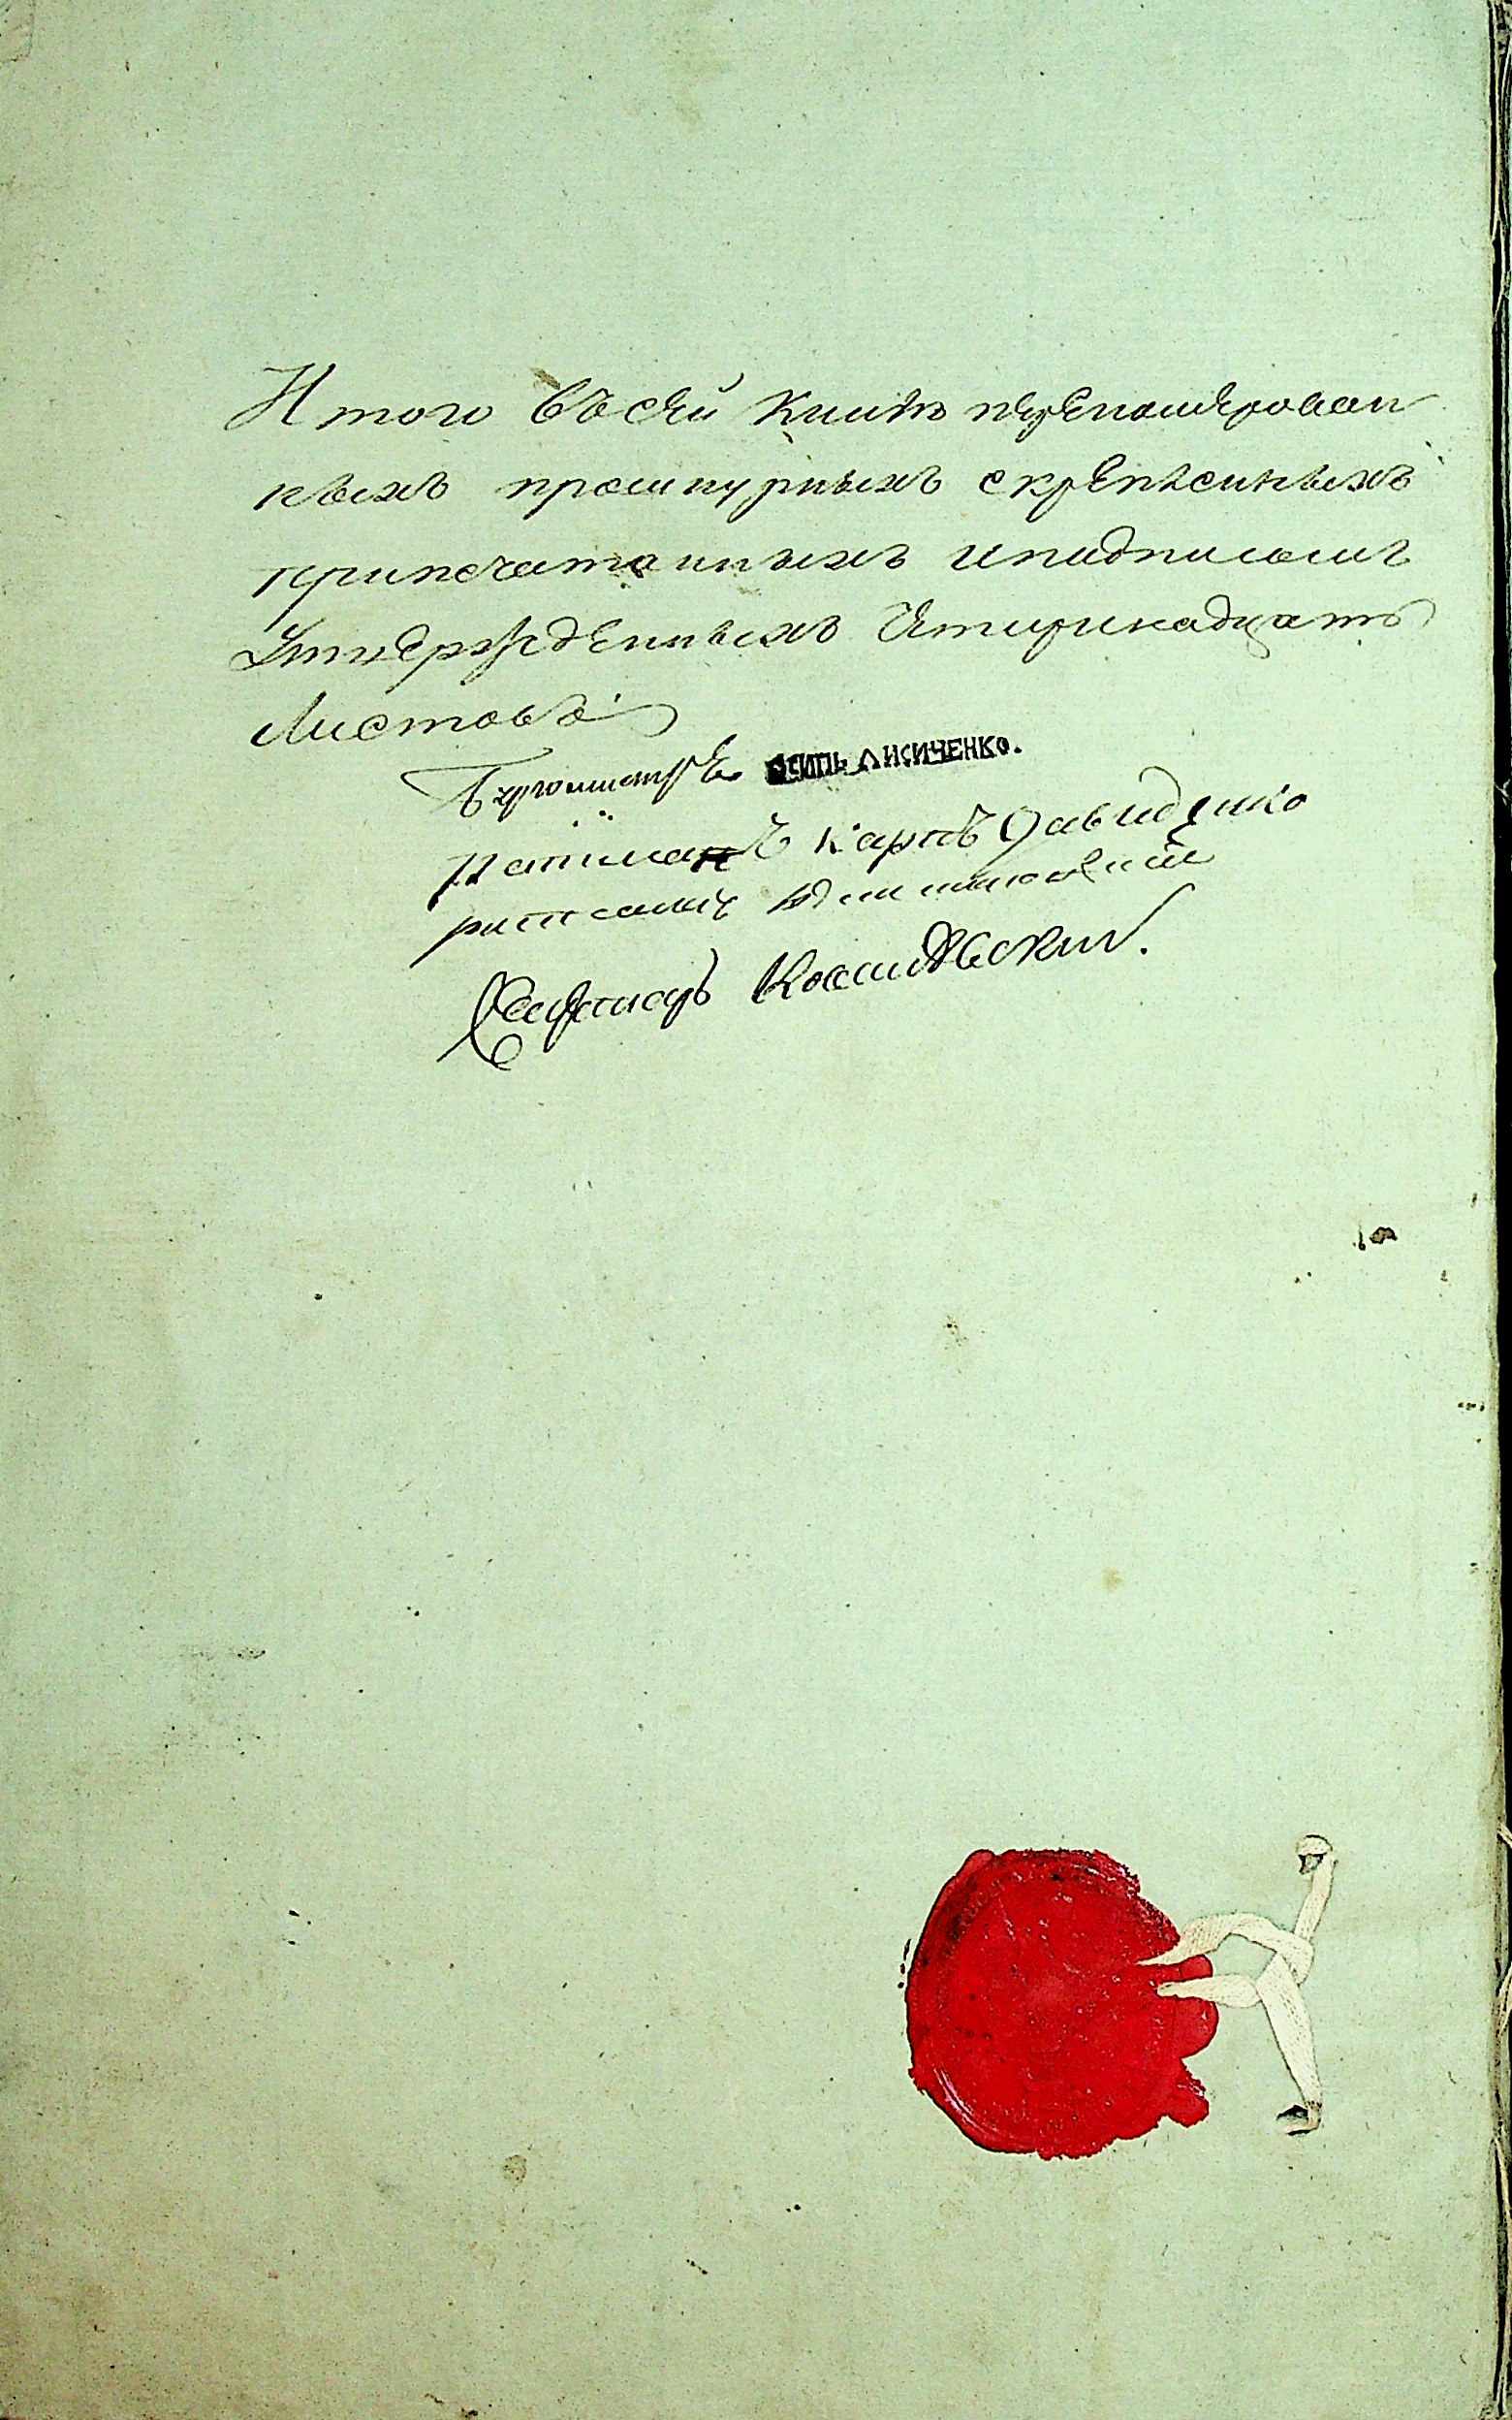 Итого въ сей книгѣ перепомерован
ныхъ прошнурныхъ скрепленныхъ
припечатанныхъ и подписомъ
утвержденныхъ Чтиринадцать
Листовъ
Бургомистръ ОСИПЪ ЛИСИЧЕНКО.
Ратманъ Карпъ Давиденко
ратманъ
Секретарь